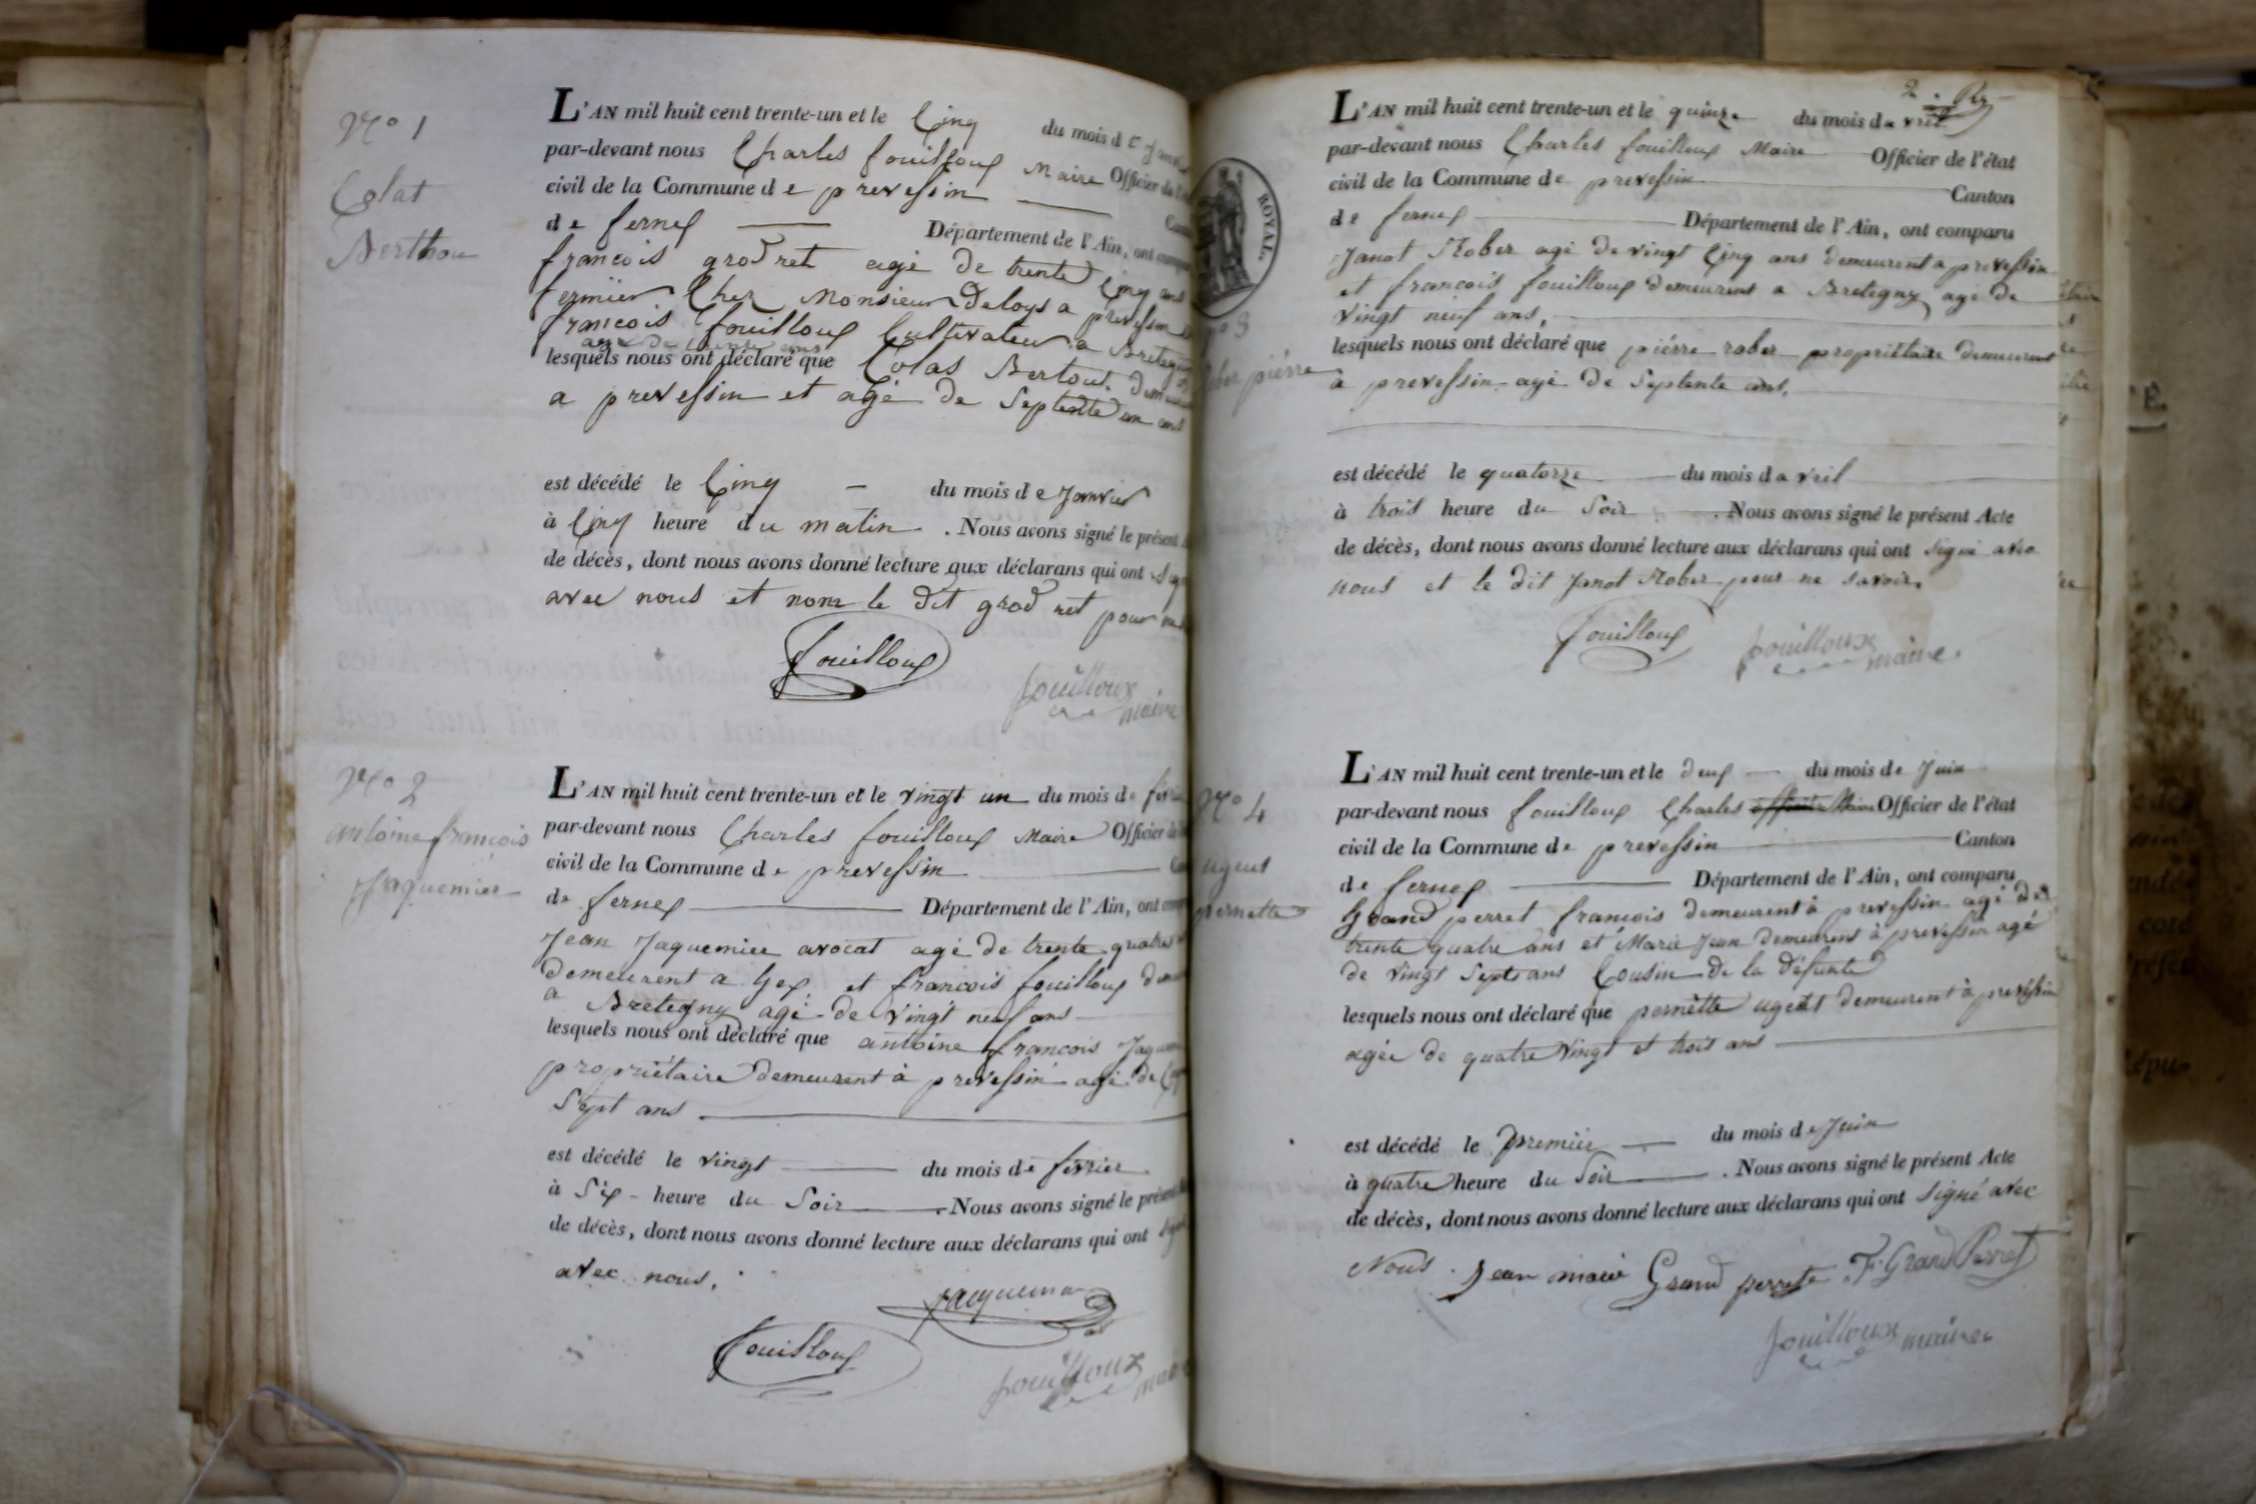 N° 1
Colat
Berthou
L'AN mil huit cent trente-un et le Cinq du mois de
par-devant nous Charles fouilloux Maire Officier de
civil de la Commune de prevessin
de fernex Département de l'Ain, ont
francois grodret agé de trente Cinq ans
fermier Chez Monsieur Deloys a prevessin
francois fouilloux Cultivateur a
agé de ans
lesquels nous ont déclaré que Colas Bertout
a prevessin et agé de Septente un ans
est décédé le Cinq du mois de Janvier
à Cinq heure du matin . Nous avons signé le présent
de décès, dont nous avons donné lecture aux déclarans qui ont
avec nous et nom le dit grod ret pour ne
fouilloux
fouilloux
maire
N° 2
antoine francois
jaquemier
L'AN mil huit cent trente-un et le vingt un du mois de
par-devant nous Charles fouilloux Maire Officier
civil de la Commune de prevessin
de fernex Département de l'Ain, ont
Jean Jaquemier avocat agé de trente quatre
demeurent a Gex et francois fouilloux
a Bretegny agé de vingt neuf ans
lesquels nous ont déclaré que antoine francois
propriétaire demeurent à prevessin agé de
Sept ans
est décédé le vingt du mois de fevrier
à Six heure du Soir . Nous avons signé le présent
de décès, dont nous avons donné lecture aux déclarans qui ont
avec nous.
fouilloux
fouilloux
2.
ROYAL
L'AN mil huit cent trente-un et le quinze du mois davril
par-devant nous Charles fouilloux Maire Officier de l'état
civil de la Commune de prevessin Canton
de fernex Département de l'Ain, ont comparu
Janot Rober agé de vingt Cinq ans demeurent a prevessin
et francois fouilloux demeurent a Bretegny agé de
vingt neuf ans,
3
pierre
lesquels nous ont déclaré que piérre rober propriétaire demeurent
a prevessin agé de Septente ans.
est décédé le quatorze du mois davril
à trois heure du Soir . Nous avons signé le présent Acte
de décès, dont nous avons donné lecture aux déclarans qui ont signé avec
nous et le dit Janot Rober pour ne savoir.
fouilloux
fouilloux
maire.
N° 4
ugent
pernette
L'AN mil huit cent trente-un et le deux du mois de Juin
par-devant nous fouilloux Charles Maire Officier de l'état
civil de la Commune de prevessin Canton
de fernex Département de l'Ain, ont comparu
Grand perret francois demeurent à prevessin agé de
trente quatre ans et Marie Jean demeurens à prevessin agé
de vingt Sept ans Cousin de la défunte
lesquels nous ont déclaré que pernette ugent demeurent à prevessin
agée de quatre vingt et trois ans
est décédé le premier du mois de Juin
à quatre heure du Soir . Nous avons signé le présent Acte
de décès, dont nous avons donné lecture aux déclarans qui ont signé avec
Nous. Jean marie Grand perrete F. Grand Perret
fouilloux maire